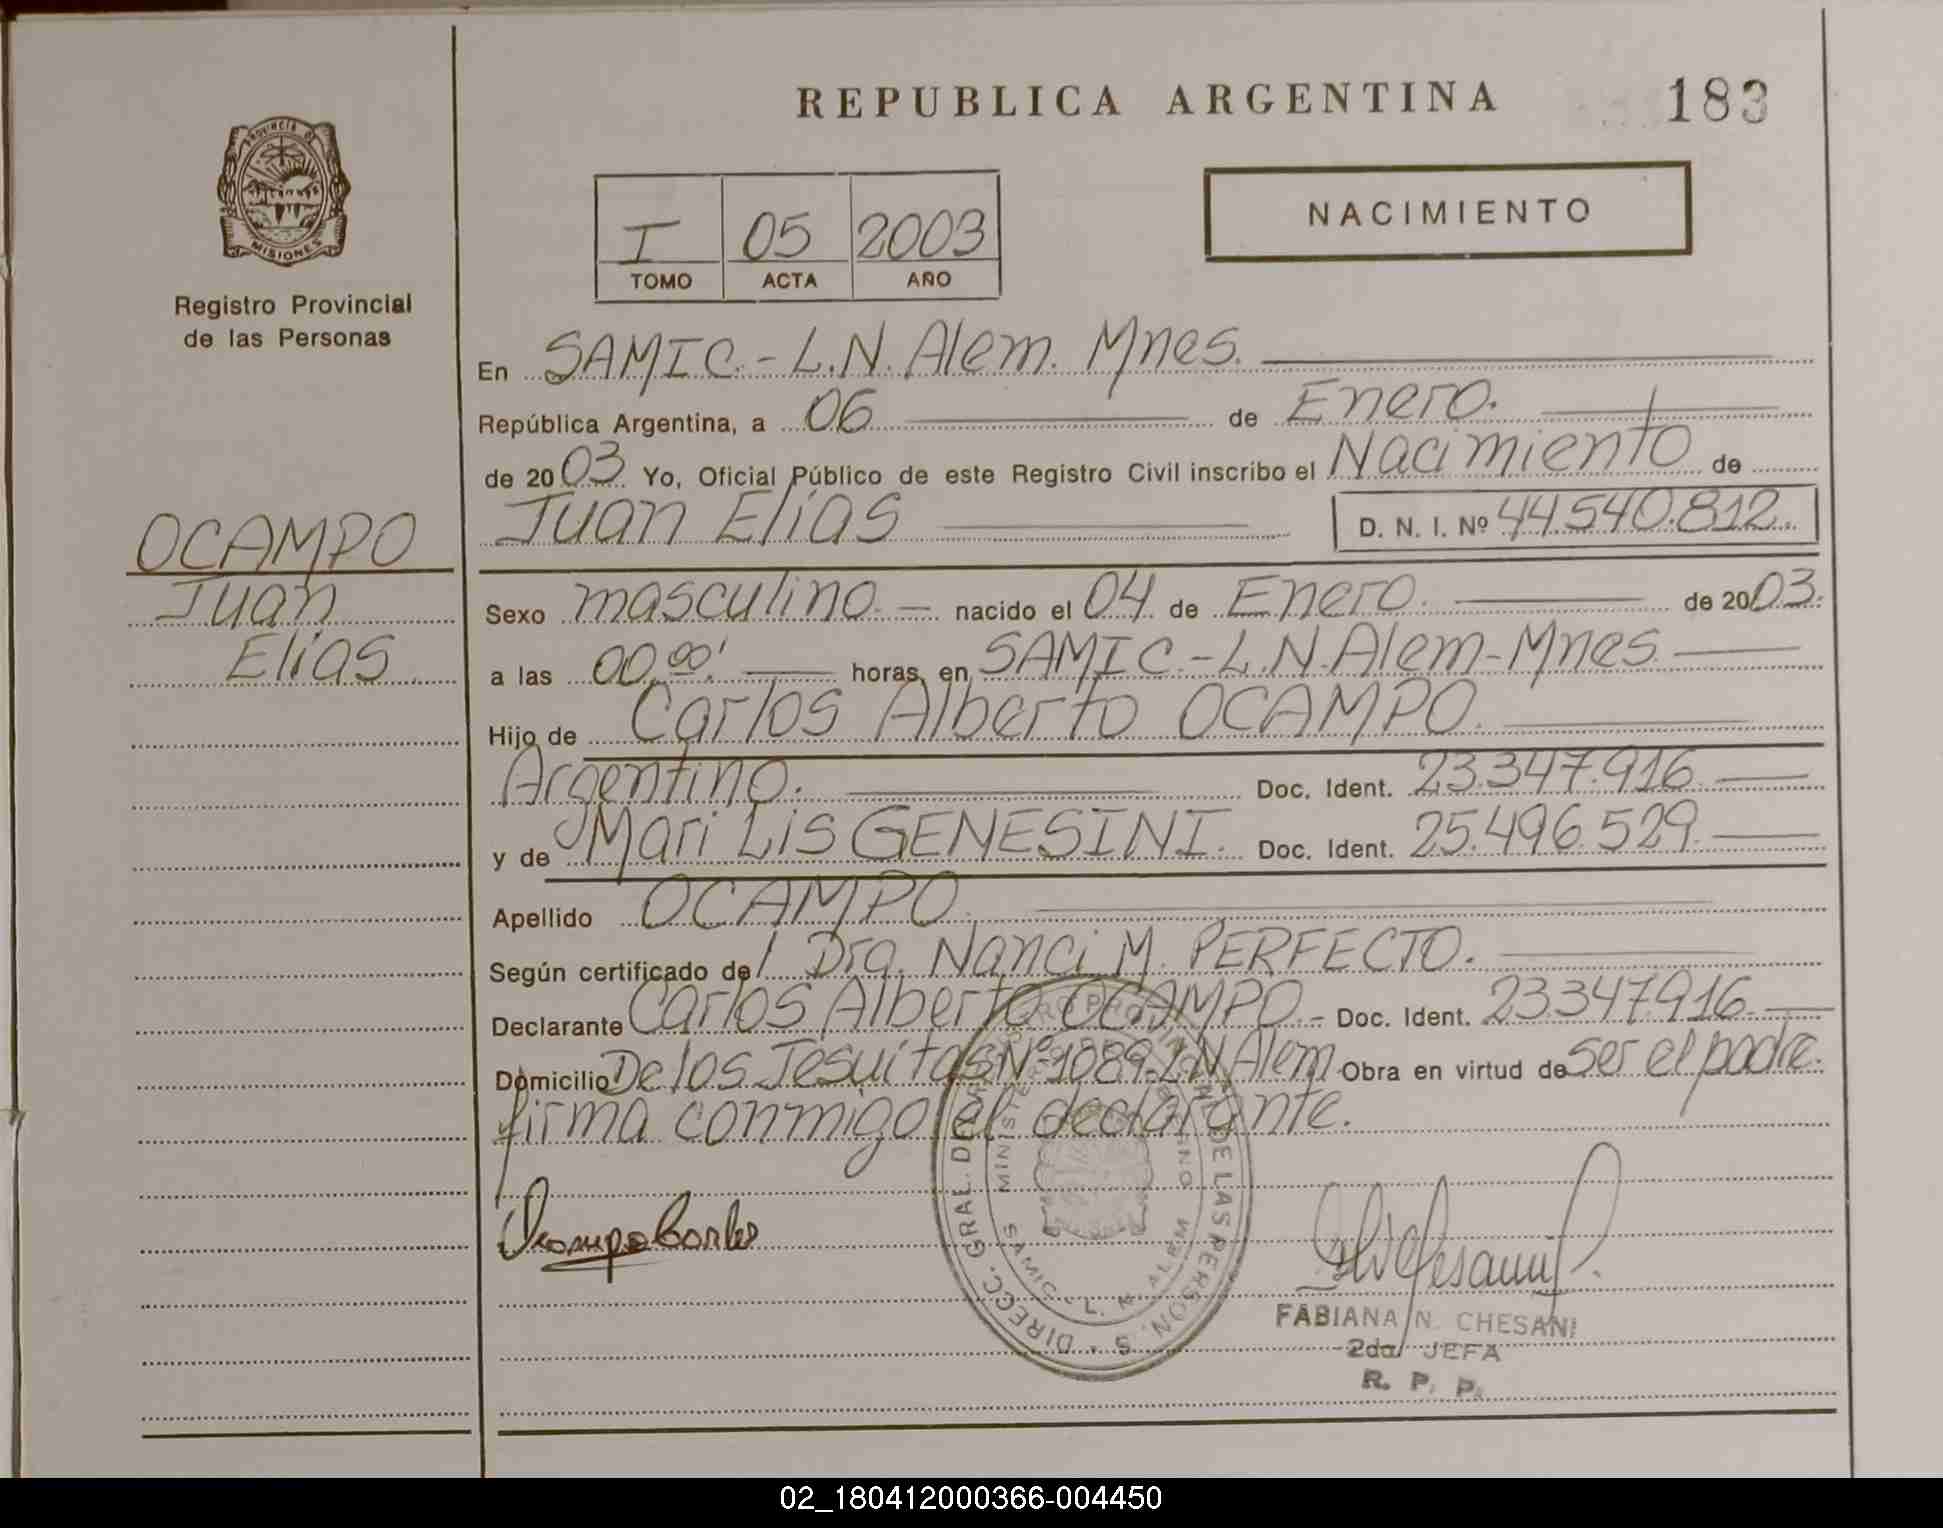 REPUBLICA ARGENTINA
183
PROVINCIA DE
MISIONES
Registro Provincial
de las Personas
I 05 2003
TOMO ACTA AÑO
NACIMIENTO
En SAMIC.-L.N. Alem. Mnes.
República Argentina, a 06 de Enero.
de 2003 Yo, Oficial Público de este Registro Civil inscribo el Nacimiento de
Juan Elías D. N. I. Nº 44.540.812.
OCAMPO
Juan
Elías
Sexo masculino.- nacido el 04 de Enero. de 2003.
a las 00,00' horas, en SAMIC.-L.N.Alem-Mnes.
Hijo de Carlos Alberto OCAMPO.
Argentino. Doc. Ident. 23.347.916
y de Mari Lis GENESINI. Doc. Ident. 25.496.529.
Apellido OCAMPO.
Según certificado de/ Dra. Nanci M. PERFECTO.
Declarante Carlos Alberto OCAMPO.- Doc. Ident. 23.347.916.
Domicilio De los Jesuitas Nº 1089-L.N Alem Obra en virtud de ser el padre.
firma conmigo el declarante.
Ocampo Carlos
DIRECC. GRAL. DEL REGISTRO PROVINCIAL DE LAS PERSONAS
MINISTERIO DE GOBIERNO
SAMIC - L. N. ALEM
FABIANA N. CHESANI
2da JEFA
R. P. P.
02_180412000366-004450